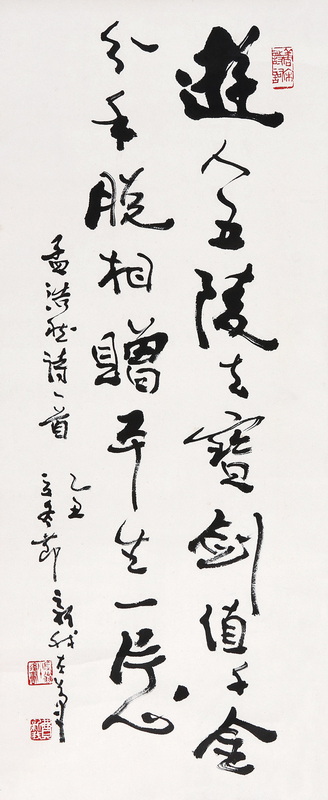 遊人五陵去寶劍值千金
分手脫相贈平生一片心
孟浩然詩一首
乙丑
立冬節新我左筆